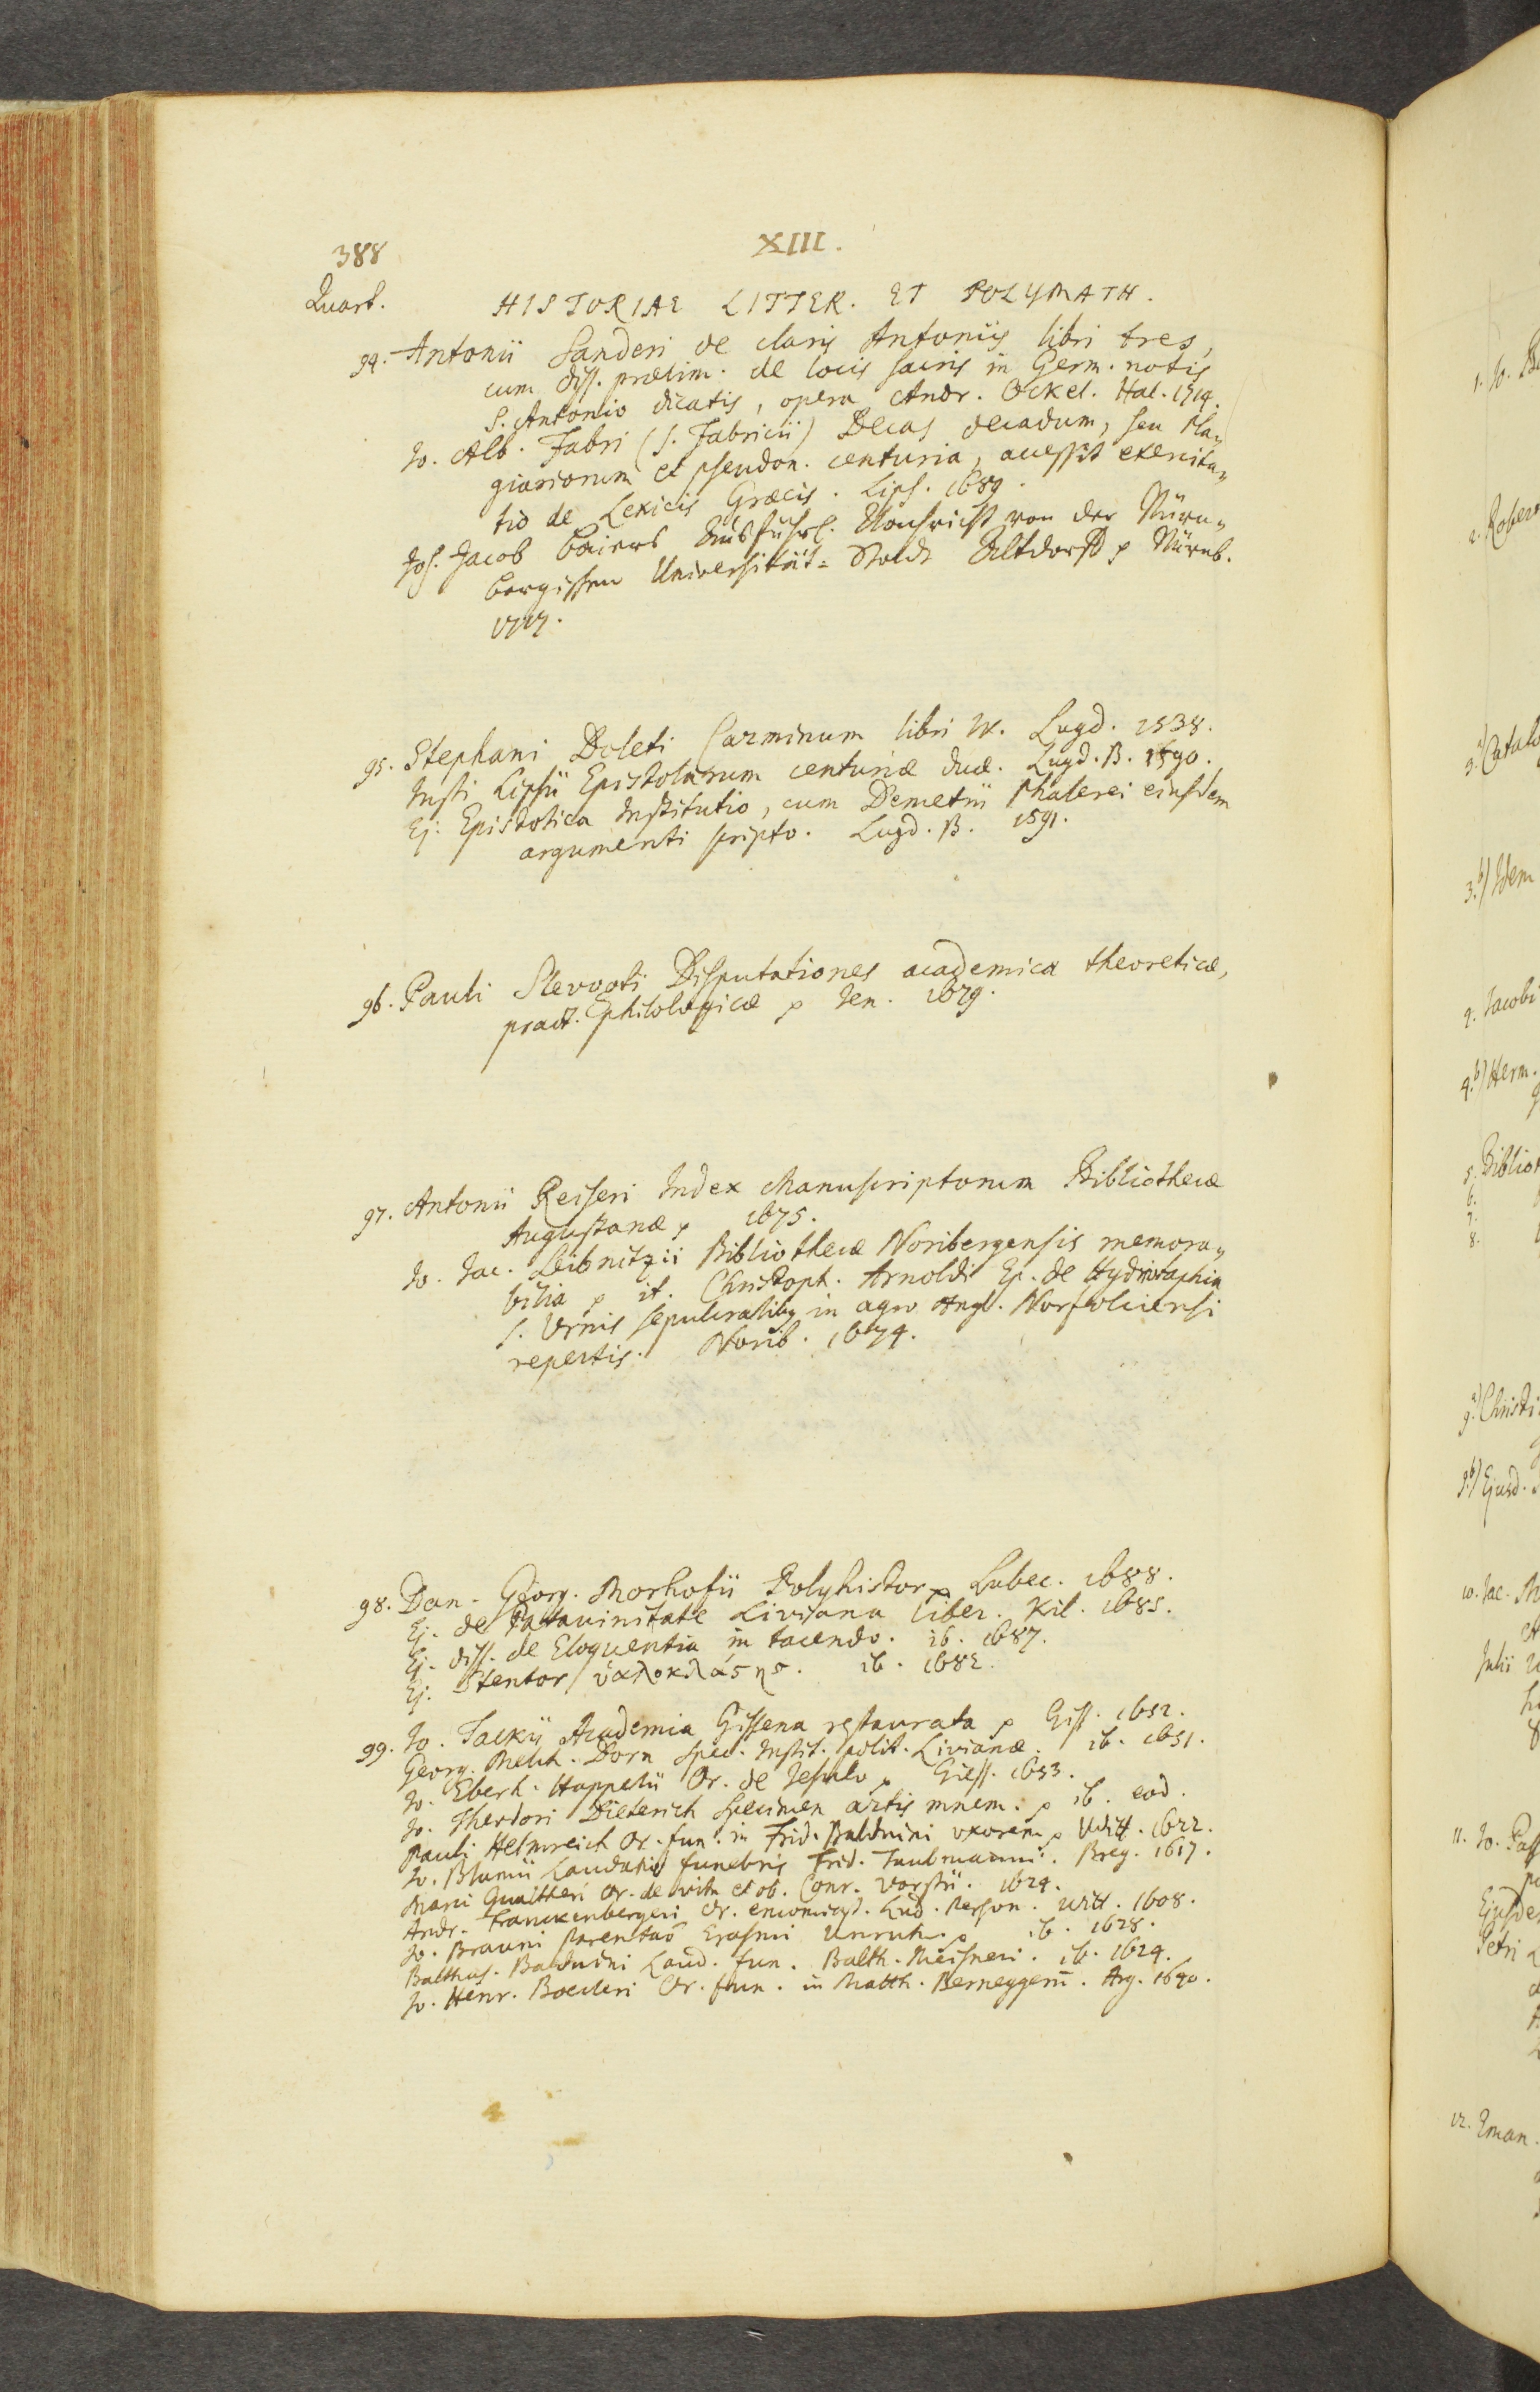 388
XIII.
Quart.
HISTORIAE LITTER. ET POLYMATH.
94. Antonii Sanderi de claris Antoniis libri tres,
cum diss. prælim. de locis sacris in Germ. notis
S. Antonio dicatis, opera Andr. Ockel. Hal. 1714.
Jo. Alb. Fabri (s. Fabricii) Decas decadum, seu Pla„
giariorum et pseudon. centuria, accessit exercita„
tio de Lexicis Græcis. Lips. 1689.
Joh. Jacob Baiers Ausführl. Nachricht von der Nürn„
bergischen Universität=Stadt Altdorff p Nürnb.
1717.
95. Stephani Doleti Carminum libri IV. Lugd. 1538.
Justi Lipsii Epistolarum centuriæ duæ. Lugd. B. 1590.
Ej. Epistolica Institutio, cum Demetrii Phalerei eiusdem
argumenti scripto. Lugd. B. 1591.
96. Pauli Slevogti Disputationes academicæ theoreticæ,
pract. philologicæ p Jen. 1679.
97. Antonii Reiseri Index Manuscriptorum Bibliothecæ
Augustanæ p 1675.
Jo. Jac. Leibnitzii Bibliothecæ Noribergensis memora„
bilia p it. Christoph. Arnoldi Ep. de Hydriotaphia
s. Urnis sepulcralibq in agro Angl. Norfolciensi
repertis. Norib. 1674.
98. Dan. Georg. Morhofii Polyhistor p Lubec. 1688.
Ej. de Patavinitate Liviana liber. Kil. 1685.
Ej. diss. de Eloquentia in tacendo. ib. 1687.
Ej. Stentor ὑαλοκλάςης. ib. 1682.
99. Jo. Tackii Academia Gissena restaurata p Giss. 1652.
Georg. Melch. Dorn Spec. Instit. polit. Livianæ. ib. 1651.
Jo. Eberh. Happelii Or. de p Giess. 1653.
Jo. Theodori Dieterich Specimen artis mnem. p ib. eod.
Pauli Helmreich Or. fun. in Frid. Balduini uxorem p Witt. 1622.
Jo. Blumii Laudatio funebris Frid. Taubmanni. Breg. 1617.
Marci Gualtheri Or. de vita et ob. Conr. Vorstii. 1624.
Andr. Franckenbergeri Or. encomiast. Lud. Person. Witt. 1608.
Jo. Brauni Parentaõ Erasmi Unruh. p ib. 1628.
Balthas. Balduini Laud. fun. Balth. Meisneri. ib. 1629.
Jo. Henr. Boecleri Or. fun. in Matth. Berneggerũ. Arg. 1640.